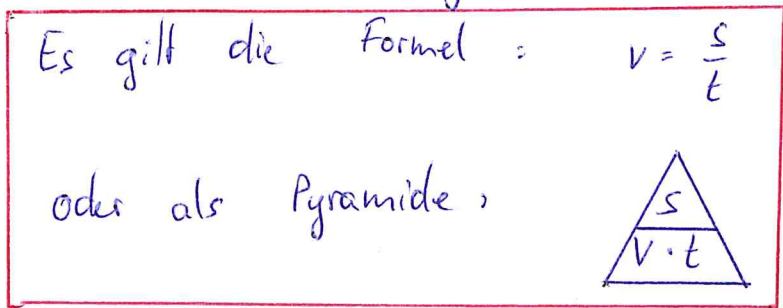 Es gilt die Formel : v = s/t
oder als Pyramide :
s
v · t